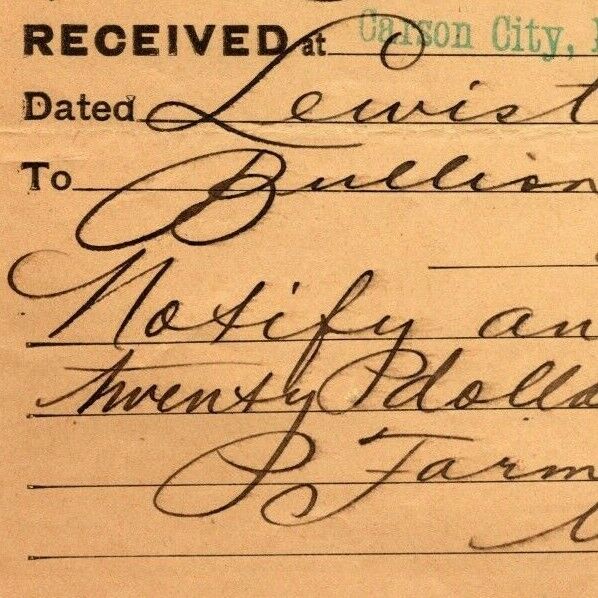 RECEIVED at Carson City,
Dated Lewist
To Bullion
Notify an
twenty dolla
P Farm